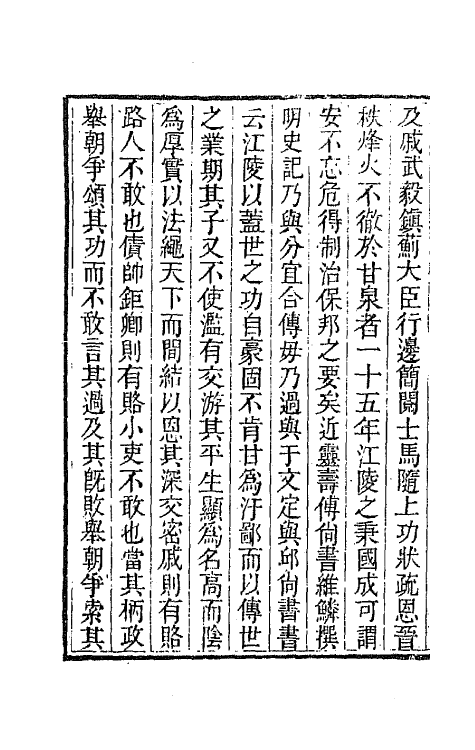 及戚武毅鎭薊大臣行邊簡閱士馬隨上功狀疏恩晉
秩烽火不徹於甘泉者一十五年江陵之秉國成可謂
安不忘危得制治保邦之要矣近靈壽傅尙書維鱗撰
明史記乃與分宜合傳毋乃過與于文定與邱尙書書
云江陵以蓋世之功自豪固不肯甘爲汙鄙而以傳世
之業期其子又不使濫有交游其平生顯爲名高而陰
爲厚實以法繩天下而間結以恩其深交密戚則有賂
路人不敢也債帥鉅卿則有賂小吏不敢也當其柄政
舉朝爭頌其功而不敢言其過及其旣敗舉朝爭索其